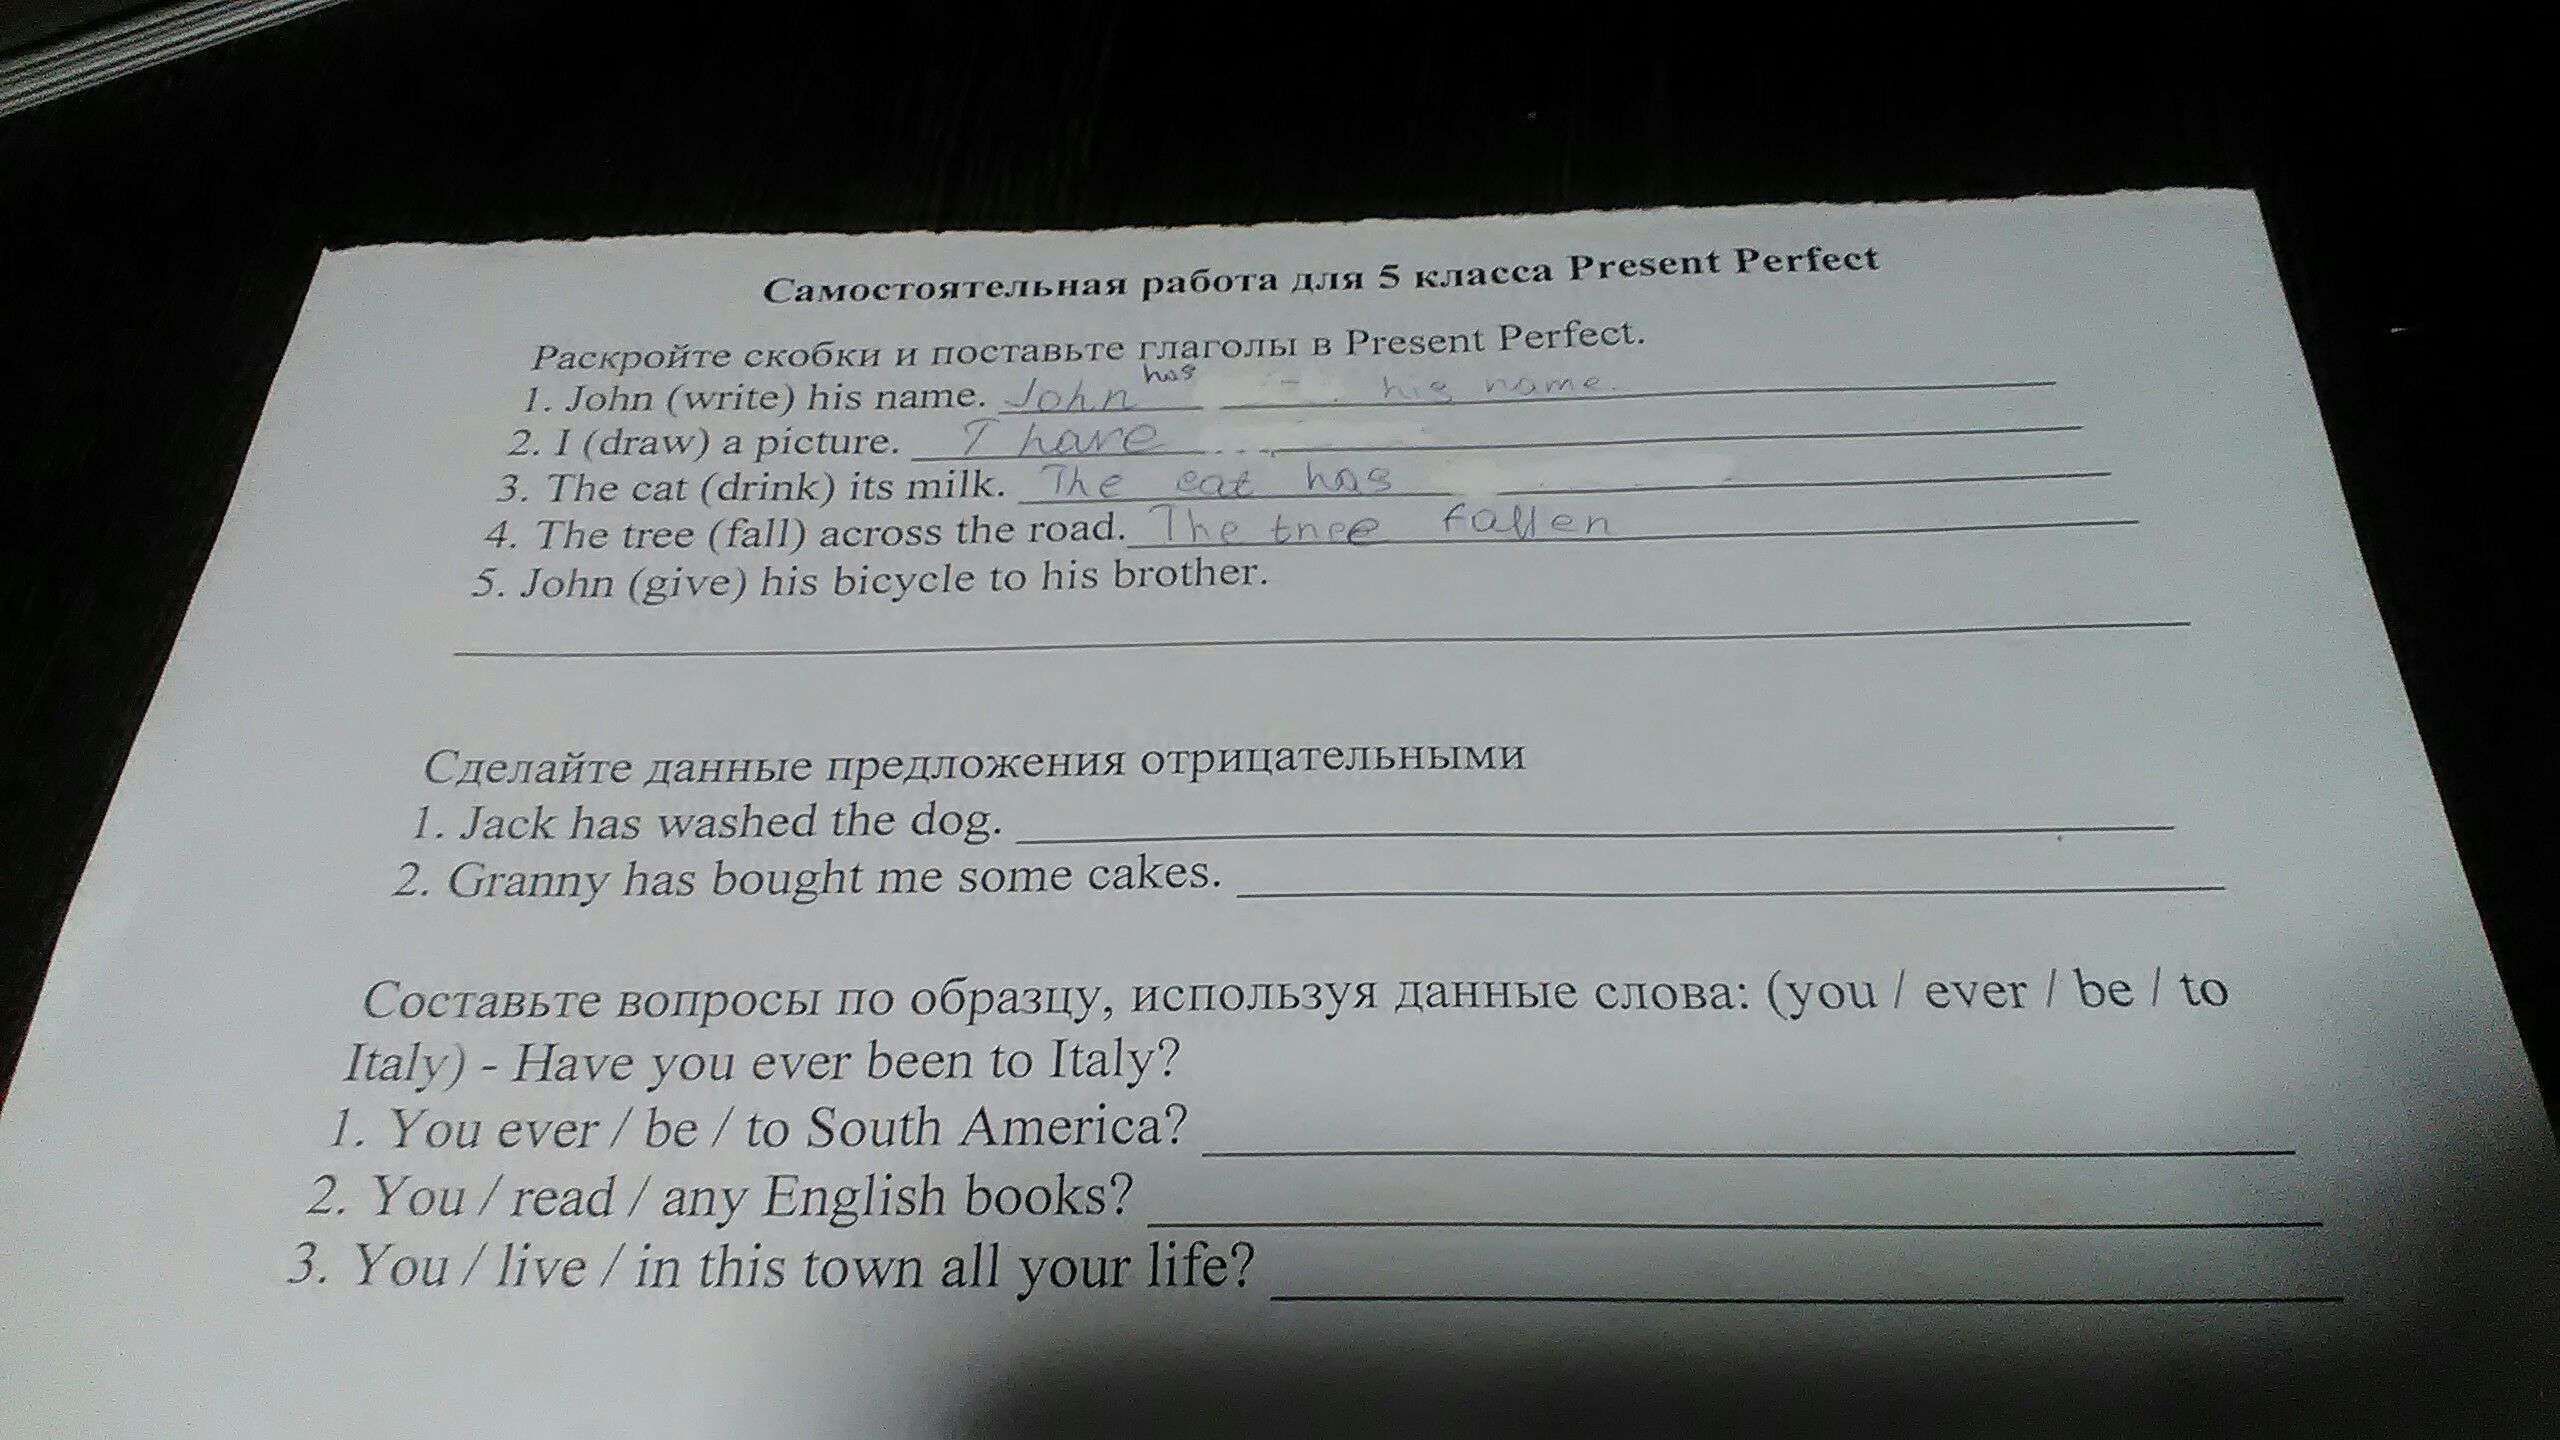 Самостоятельная работа для 5 класса Present Perfect
Раскройте скобки и поставьте глаголы в Present Perfect.
has
1. John (write) his name. John his name.
2. I (draw) a picture. I have
3. The cat (drink) its milk. The cat has
4. The tree (fall) across the road. The tree fallen
5. John (give) his bicycle to his brother.
Сделайте данные предложения отрицательными
1. Jack has washed the dog.
2. Granny has bought me some cakes.
Составьте вопросы по образцу, используя данные слова: (you / ever / be / to
Italy) - Have you ever been to Italy?
1. You ever / be / to South America?
2. You / read / any English books?
3. You / live / in this town all your life?